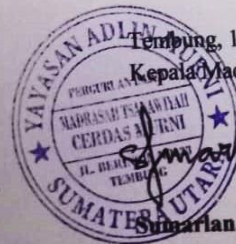 Tembung, 1
Kepala Mad
YAYASAN ADLIN MURNI
PERGURUAN
MADRASAH TSANAWIYAH
CERDAS MURNI
TEMBUNG
SUMATERA UTARA
Sumarlan